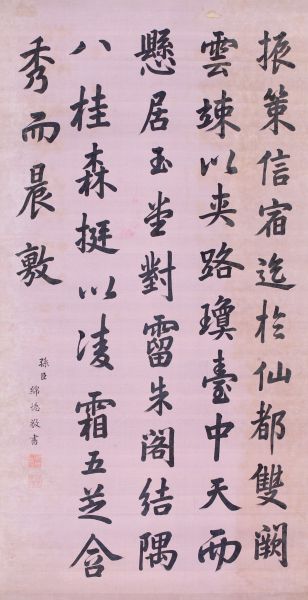 振策信宿迄於仙都雙闕
雲竦以夹路瓊臺中天而
懸居玉堂對霤朱閣結隅
八桂森挺以凌霜五芝含
秀而晨敷
孫臣綿德敬書